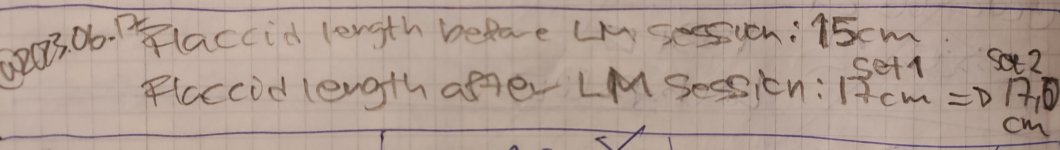 2023.06.12 Flaccid length before LM session: 15cm
Flaccid length after LM session: set 1 17cm => set 2 17,0 cm